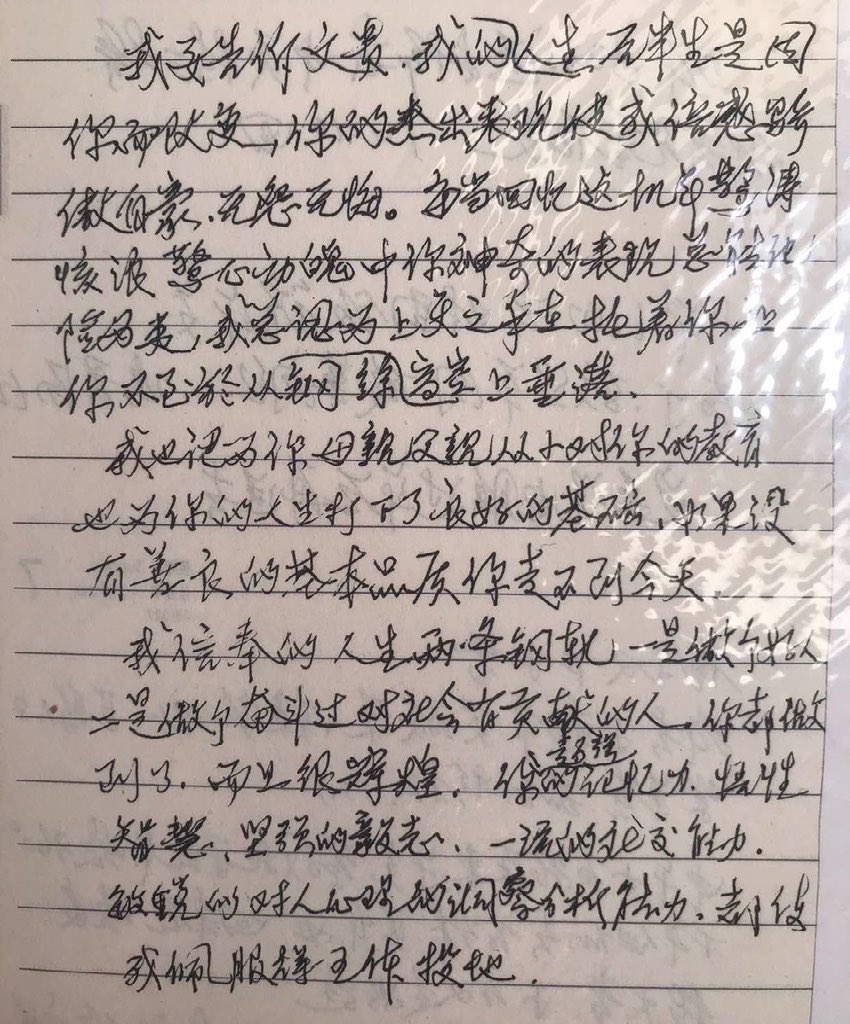 我要告你文贵、我的人生后半生是因
你而改变，你的杰出表现使我倍感骄
傲自豪、无怨无悔。每当回忆这几年惊涛
骇浪惊心动魄中你神奇的表现总能化
险为夷，我总认为上天之手在托着你
你不至於从钢丝高空上垂落、
我也认为你母亲父亲从小对你的教育
也为你的人生打下了良好的基础，如果没
有善良的基本品质你走不到今天.
我信奉的人生两条钢轨一是做个好人
二是做个奋斗过对社会有贡献的人。你都做
到了. 而且很辉煌. 你的超强记忆力. 悟性
智慧、坚强的毅志、一流的社交能力.
敏锐的对人心理的洞察分析能力、都使
我佩服得五体投地.